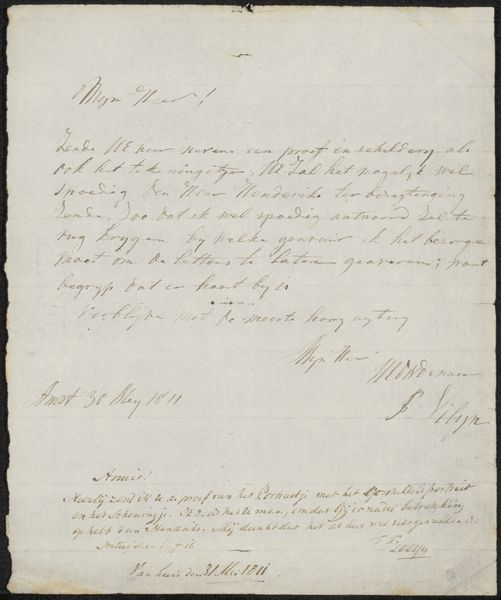 Myn Heer!
Zende UE neer nevens een proef en schildery als
ook het tekeningetje, UE Zal het mogelyk wel
spoedig den Heer Hendriks ter bezigtiging
Zende, Zoo dat ik wel spoedig antwoord zal te
rug krygen by welke graveur ik het bezorge
moet om de letters te laten graveren; want
begryp dat er haast by is
Verblyve met de meeste hoog agting
Myn Heer
UEd Dienaar
P. Velyn
Amst 30 Mey 1811
Amice!
Hierbij zend ik u de proef van het Portraitje met het portrait
en het Schetsingje. Ik zend het u maar, omdat
op zelf aan Hendriks. Mij dunkt dat het al heel wel
Van huis den 31 Mei 1811